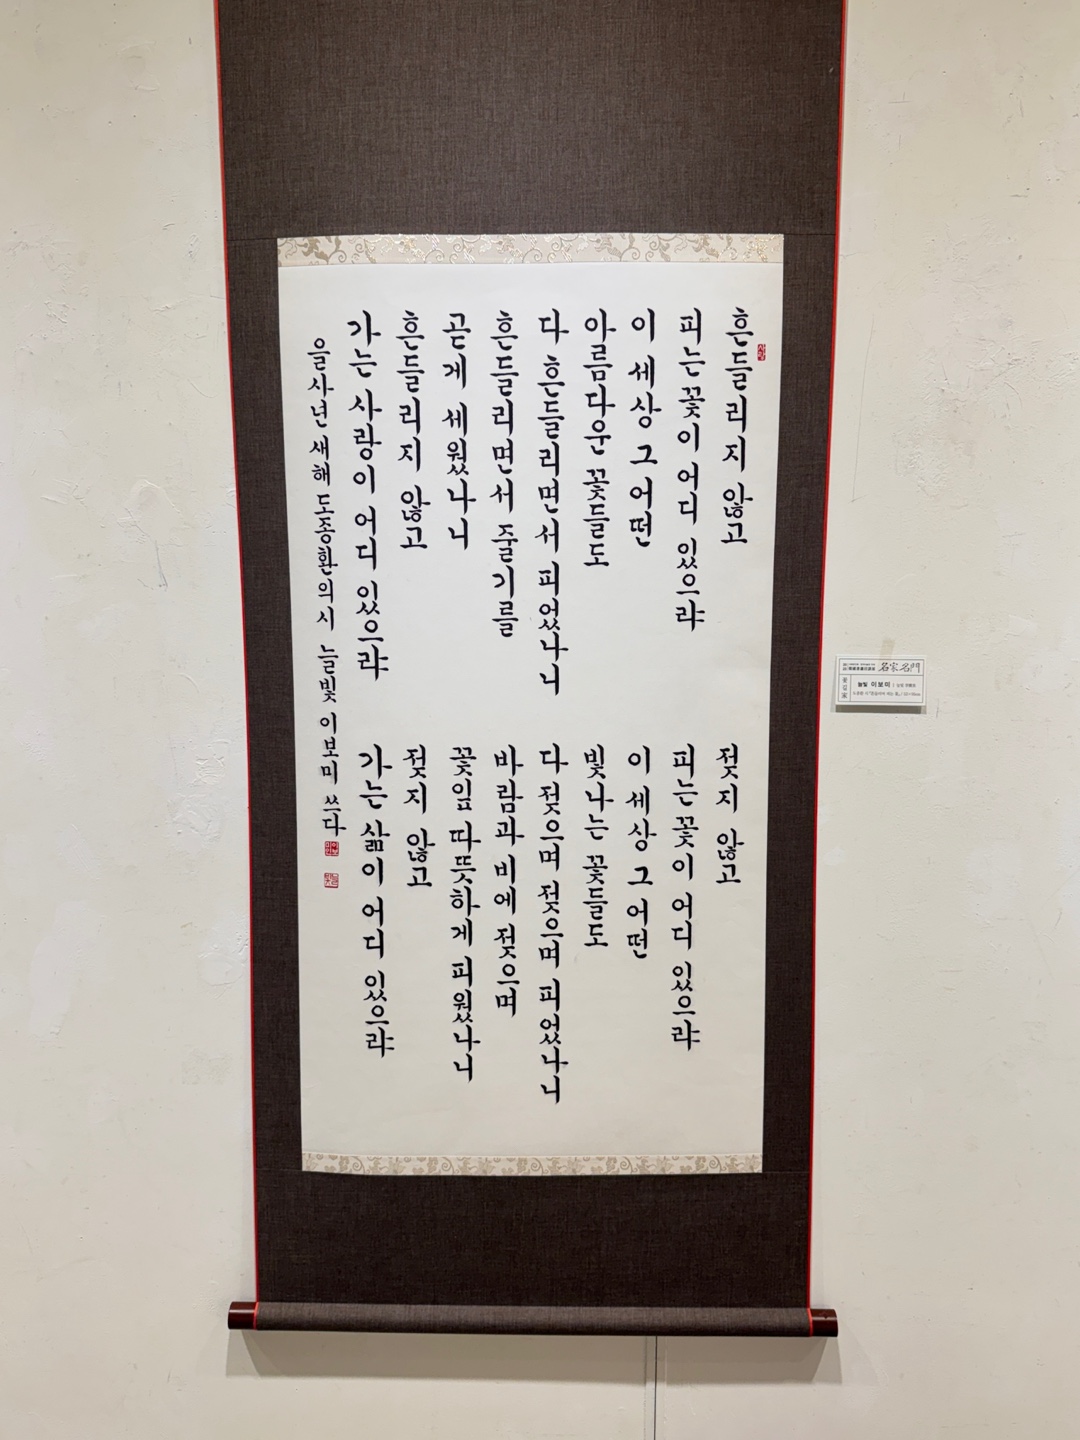 흔들리지 않고
피는 꽃이 어디 있으랴
이 세상 그 어떤
아름다운 꽃들도
다 흔들리면서 피었나니
흔들리면서 줄기를
곧게 세웠나니
흔들리지 않고
가는 사랑이 어디 있으랴
젖지 않고
피는 꽃이 어디 있으랴
이 세상 그 어떤
빛나는 꽃들도
다 젖으며 젖으며 피었나니
바람과 비에 젖으며
꽃잎 따뜻하게 피웠나니
젖지 않고
가는 삶이 어디 있으랴
을사년 새해 도종환의 시 늘빛 이보미 쓰다
사랑
名家名門
늘빛 이보미